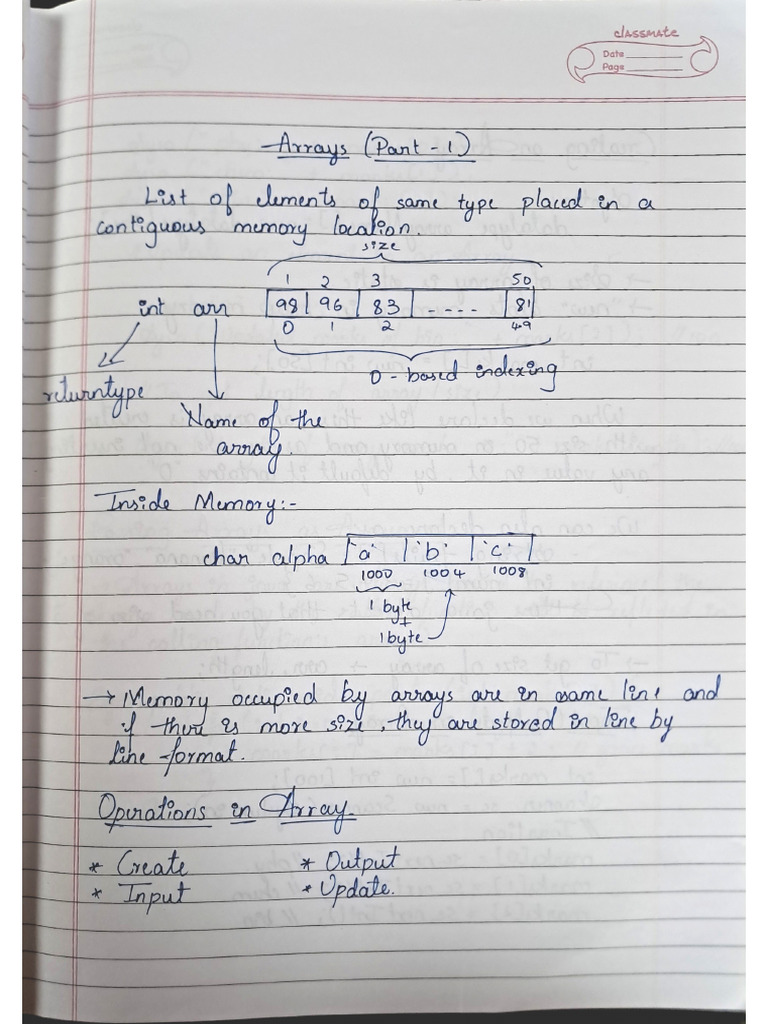 classmate
Date
Page
Arrays (Part - 1)
List of elements of same type placed in a
contiguous memory location.
size
1 2 3 50
int arr 98 96 83 ---- 81
0 1 2 49
0 - based indexing
returntype
Name of the
array.
Inside Memory:-
char alpha 'a' 'b' 'c'
1000 1004 1008
1 byte
+
1byte
→ Memory occupied by arrays are in same line and
if there is more size, they are stored in line by
line format.
Operations in Array.
* Create * Output
* Input * Update.